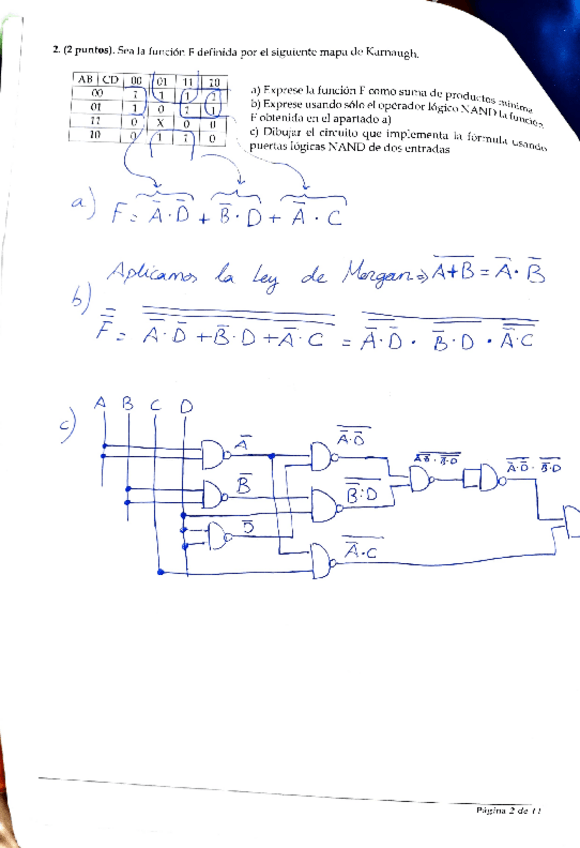 2. (2 puntos). Sea la función F definida por el siguiente mapa de Karnaugh.
AB | CD 00 01 11 10
00 1 1
01 1 0 1
11 0 X 0 0
10 0 1 1 0
a) Exprese la función F como suma de productos mínima
b) Exprese usando sólo el operador lógico NAND la función
F obtenida en el apartado a)
c) Dibujar el circuito que implementa la fórmula usando
puertas lógicas NAND de dos entradas
a) F = A̅·D̅ + B̅·D + A̅·C
Aplicamos la Ley de Morgan ⇒ \overline{A+B} = A̅·B̅
b) \overline{\overline{F}} = \overline{\overline{A̅·D̅ + B̅·D + A̅·C}} = \overline{\overline{A̅·D̅} · \overline{B̅·D} · \overline{A̅·C}}
c) A B C D
A̅ \overline{A̅·D̅}
B̅ \overline{B̅·D}
D̅ \overline{A̅·C}
\overline{A̅·D̅} · \overline{B̅·D}
Página 2 de 11